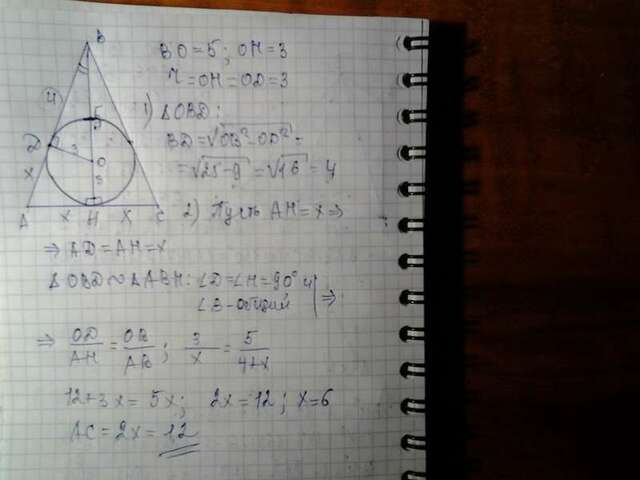 B
4
5
D
3
O
3
x
A
x
H
x
C
BO = 5 ; OH = 3
r = OH = OD = 3
1) ΔOBD :
BD = √OB² - OD² =
= √25 - 9 = √16 = 4
2) Пусть AH = x ⇒
⇒ AD = AH = x
ΔOBD ∾ ΔABH : ∠D = ∠H = 90° и
∠B - общий | ⇒
⇒ OD/AH = OB/AB ; 3/x = 5/4+x
12 + 3x = 5x ; 2x = 12 ; x = 6
AC = 2x = 12